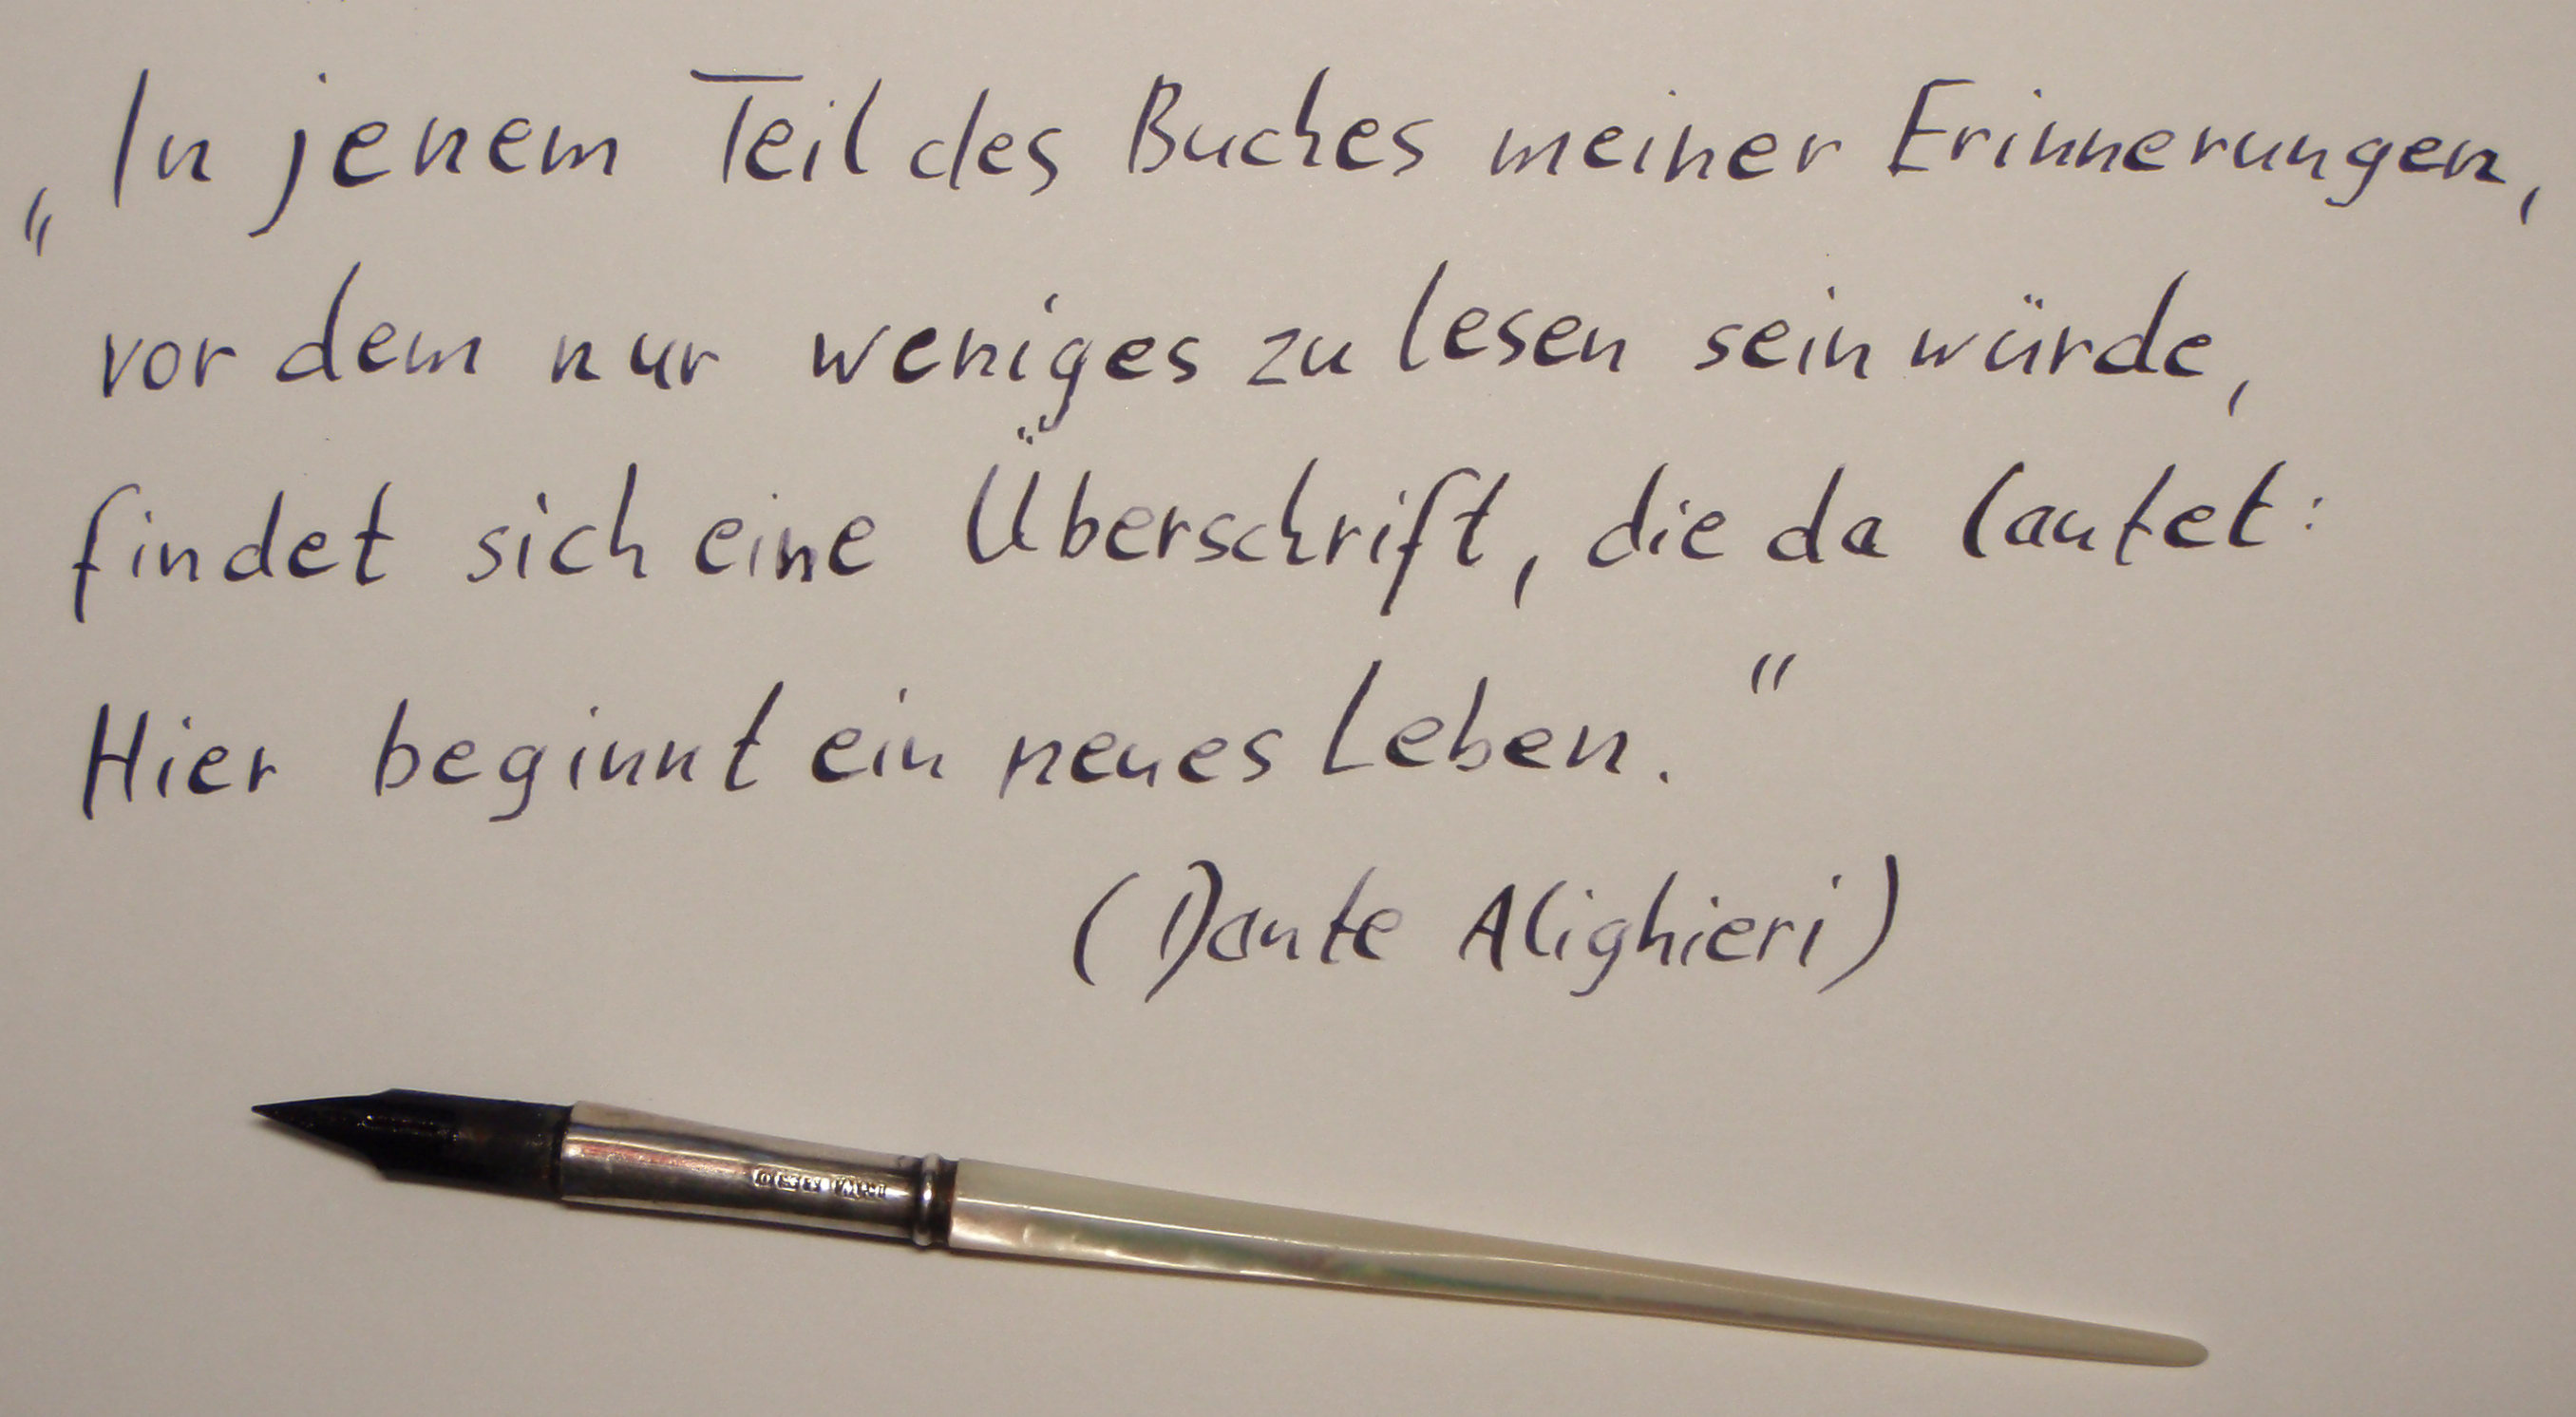 „In jenem Teil des Buches meiner Erinnerungen,
vor dem nur weniges zu lesen sein würde,
findet sich eine Überschrift, die da lautet:
Hier beginnt ein neues Leben."
(Dante Alighieri)